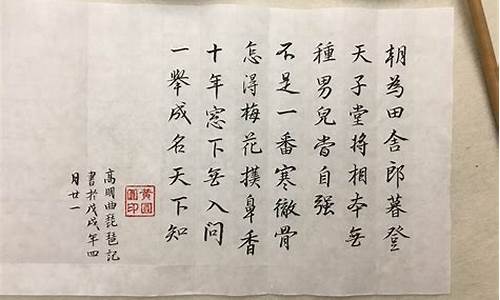 朝為田舍郎暮登
天子堂將相本無
種男兒當自强
不是一番寒徹骨
怎得梅花撲鼻香
十年窓下無人問
一舉成名天下知
高明曲琵琶記
書於戊戌年四
月廿一